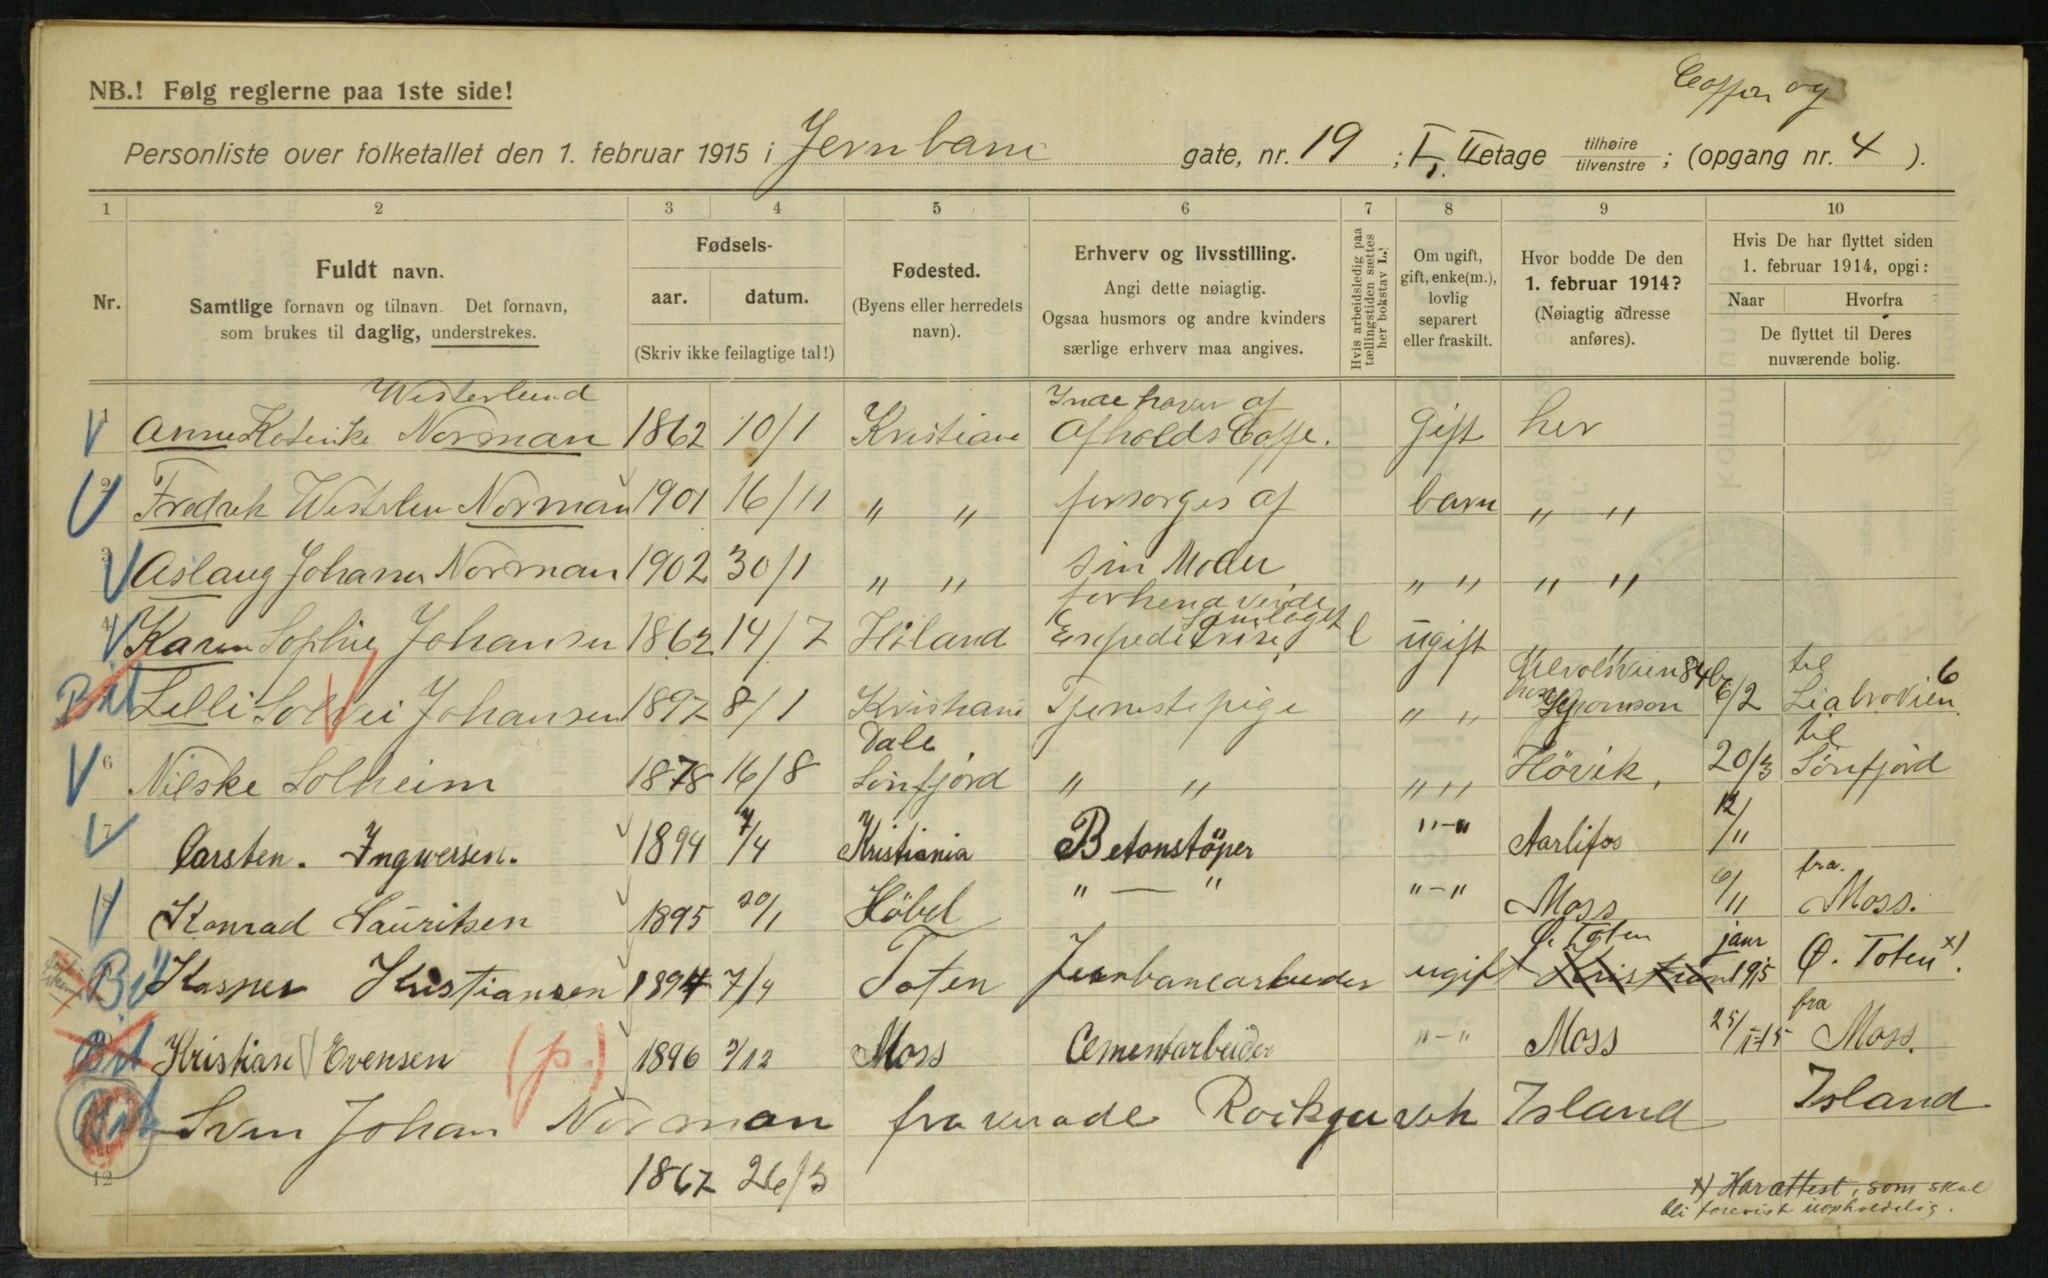 Coffen og
NB.! Følg reglerne paa 1ste side!
Personliste over folketallet den 1. februar 1915 i Jernbane gate, nr. 19 ; I, II etage tilhøire tilvenstre ; (opgang nr. 4 ).
1 2 3 4 5 6 7 8 9 10
Nr.
Fuldt navn.
Samtlige fornavn og tilnavn. Det fornavn,
som brukes til daglig, understrekes.
Fødsels-
aar. datum.
(Skriv ikke feilagtige tal!)
Fødested.
(Byens eller herredets
navn).
Erhverv og livsstilling.
Angi dette nøiagtig.
Ogsaa husmors og andre kvinders
særlige erhverv maa angives.
Hvis arbeidsledig paa
tællingstiden sættes
her bokstav L!
Om ugift,
gift, enke(m.),
lovlig
separert
eller fraskilt.
Hvor bodde De den
1. februar 1914?
(Nøiagtig adresse
anføres).
Hvis De har flyttet siden
1. februar 1914, opgi:
Naar Hvorfra
De flyttet til Deres
nuværende bolig.
Westerlund Indehaver af
1 Anne Norman 1862 10/1 Kristiane AfholdsCaffe. gift her
2 Fredrek Norman 1901 16/11 " " forsorges af barn " "
3 Aslaug Johanne Norman 1902 30/1 " " sin Moder " " " "
forhenværende
Samlaget
4 Karen Sophie Johansen 1862 14/7 Høland Expeditrise, l ugift
84b til 6
Lilli Solvei Johansen 1897 8/1 Kristiane Tjenestepige " " hos 6/2 Liabrovien
Dale til
6 Nilske Solheim 1878 16/8 Sønfjord " " " " Høvik, 20/3 Sönfjord
7 Carsten. Ingwersen. 1894 7/4 Kristiania Betonstöper "-" Aarlifos 12/11
fra.
8 Konrad Lauritsen 1895 20/1 Höbel " — " "-" Moss 6/11 Moss.
Ø. Toten jaur
Kasper Kristiansen 1894 7/4 Toten Jernbanearbeider ugift 1915 Ø. Toten x).
fra
Kristian Evensen (p.) 1896 Moss Cementarbeider "-" Moss 25/1-15 Moss.
Sven Johan Norman fraværade Roikjavik Island Island
12 1867 26/3
x) Har attest, som skal
bli forevist uopholdelig.